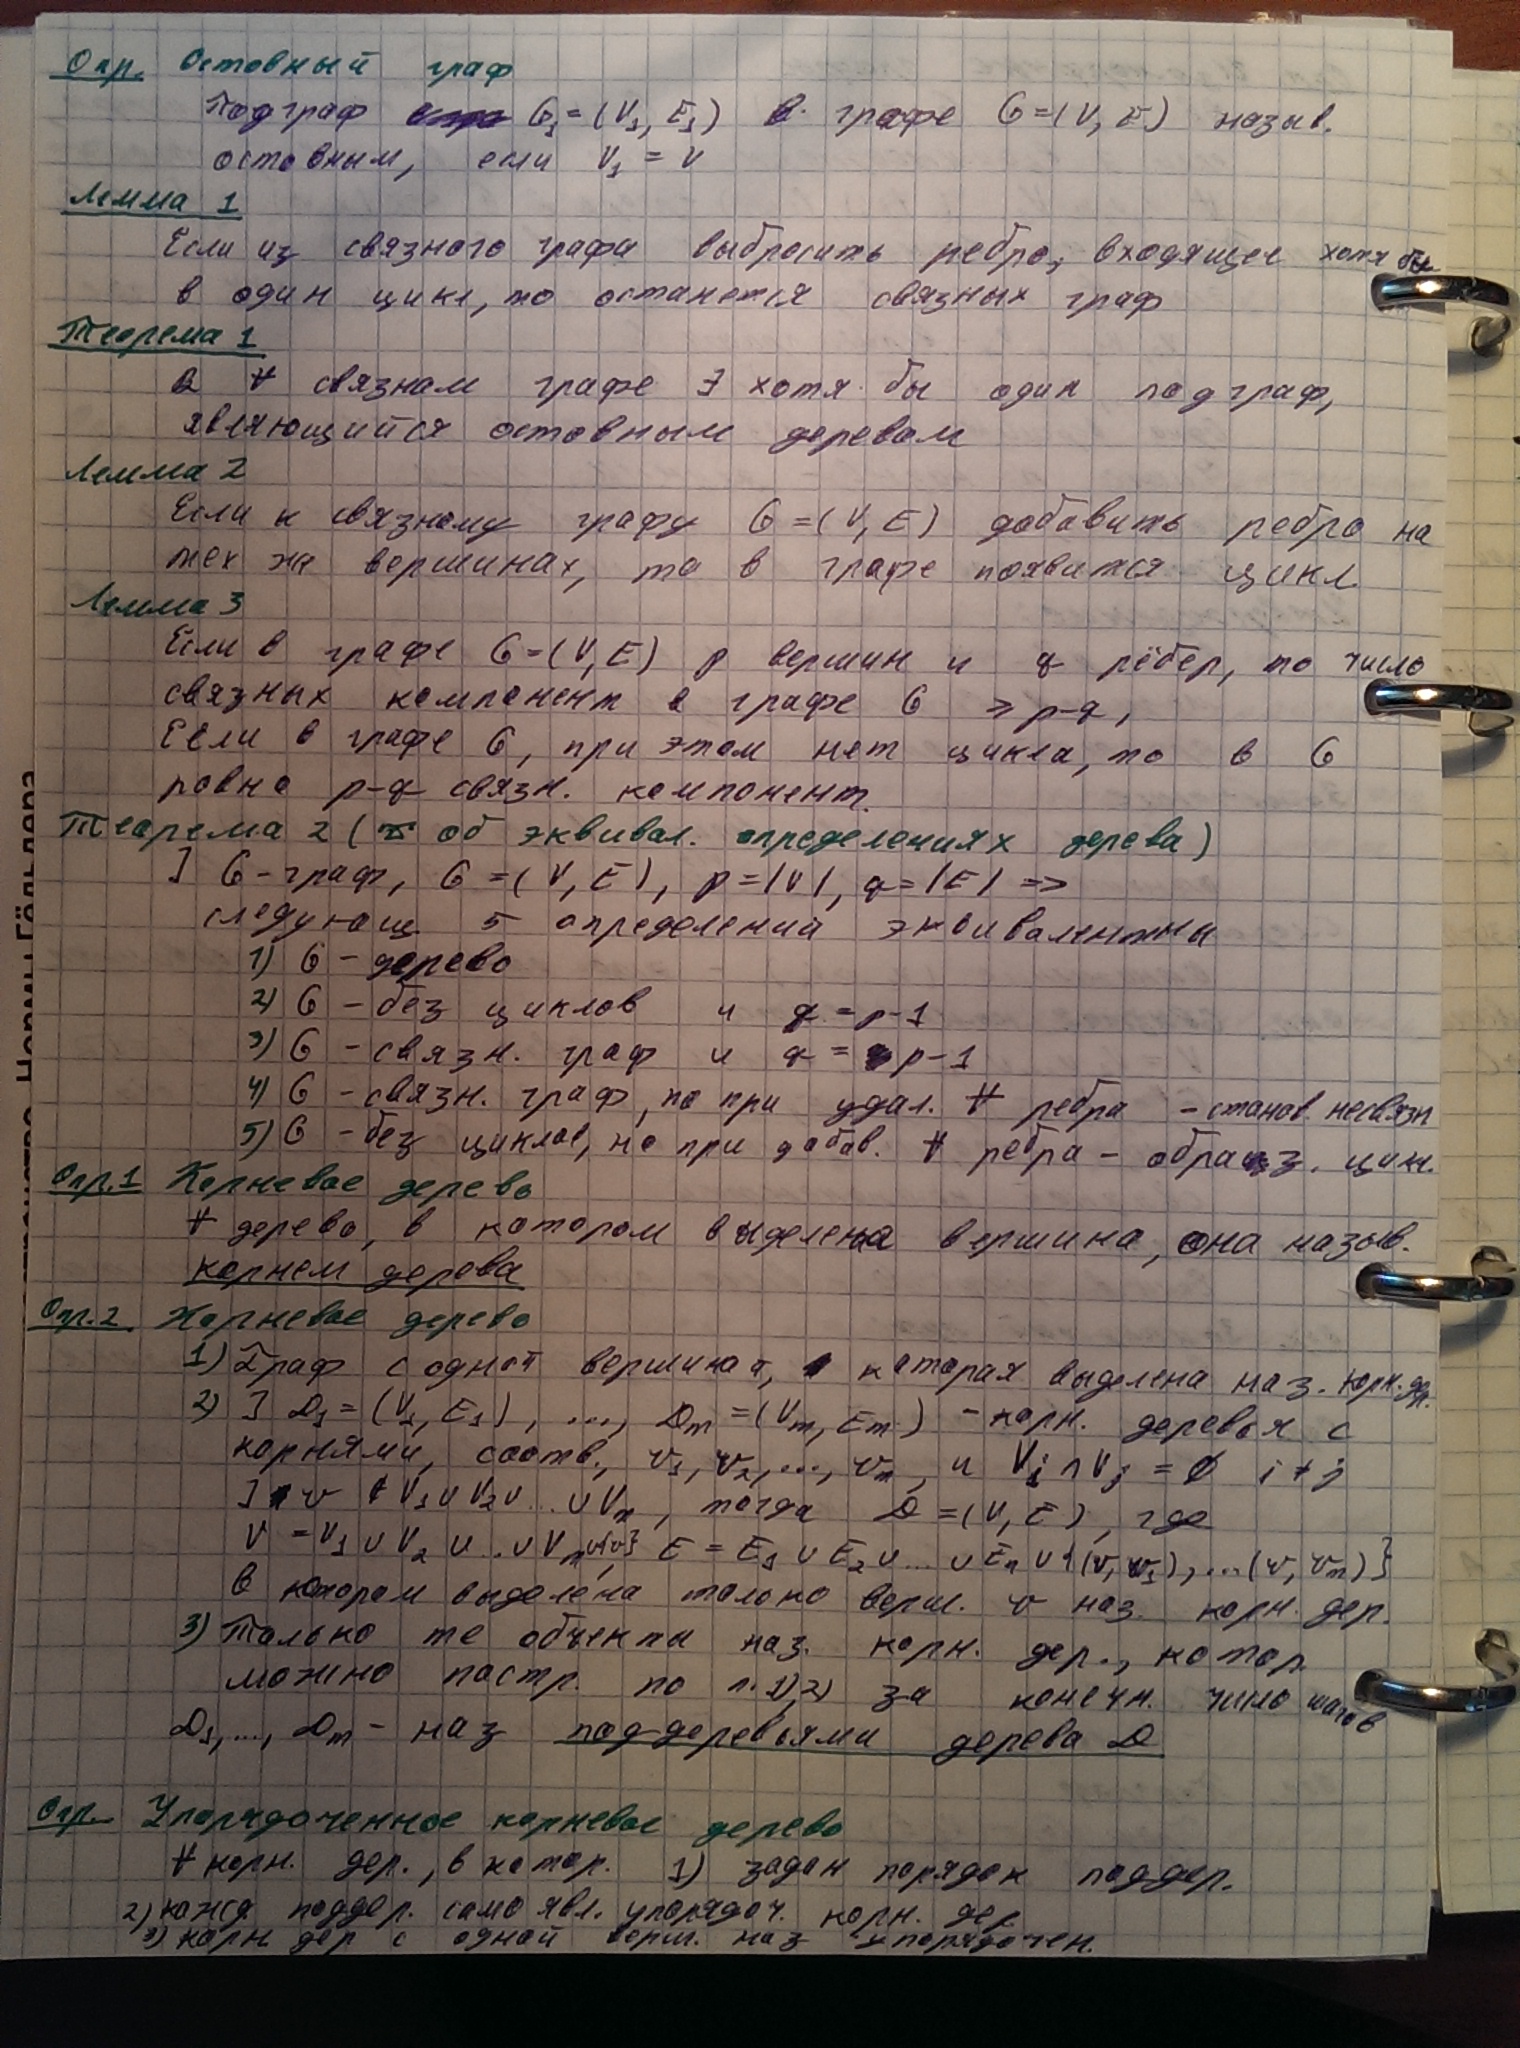 Опр. Остовный граф
Подграф G₁=(V₁, E₁) в графе G=(V, E) назыв.
остовным, если V₁ = V
Лемма 1
Если из связного графа выбросить ребро, входящее хотя бы
в один цикл, то останется связных граф
Теорема 1
В ∀ связнам графе ∃ хотя бы один подграф,
являющийся остовным деревом
Лемма 2
Если к связному графу G=(V, E) добавить ребро на
тех же вершинах, то в графе появится цикл
Лемма 3
Если в графе G=(V, E) p вершин и q рёбер, то число
связных компонент в графе G ≥ p-q,
Если в графе G, при этом нет цикла, то в G
ровно p-q связн. компонент.
Теорема 2 ( об эквивал. определениях дерева)
] G-граф, G=(V, E), p=|V|, q=|E| =>
следующ. 5 определений эквивалентны
1) G - дерево
2) G - без циклов и q=p-1
3) G - связн. граф и q = p-1
4) G - связн. граф, но при удал. ∀ ребра - станов. несвязн
5) G - без циклов, но при добав. ∀ ребра - образ. цик.
Опр.1 Корневое дерево
∀ дерево, в котором выделена вершина, она назыв.
корнем дерева
Опр.2 Корневое дерево
1) Граф с одной вершиной, которая выделена наз. корн. дер.
2) ] D₁=(V₁, E₁), ..., Dₘ=(Vₘ, Eₘ) - корн. деревья с
корнями, соотв., v₁, v₂, ..., vₘ, и Vᵢ ∩ Vⱼ = ∅ i ≠ j
] v ∉ V₁∪V₂∪...∪Vₘ, тогда D=(V, E), где
V = V₁ ∪ V₂ ∪ ... ∪ Vₘ∪{v}, E = E₁ ∪ E₂ ∪ ... ∪ Eₘ ∪ {(v, v₁), ...(v, vₘ)}
в котором выделена только верш. v наз. корн. дер.
3) Только те объекты наз. корн. дер., котор.
можно постр. по п. 1),2) за конечн. число шагов
D₁, ..., Dₘ - наз поддеревьями дерева D
Опр. Упорядоченное корневое дерево
∀ корн. дер., в котор. 1) задан порядок поддер.
2) кажд. поддер. само явл. упорядоч. корн. дер
3) корн дер с одной верш. наз упорядочен.